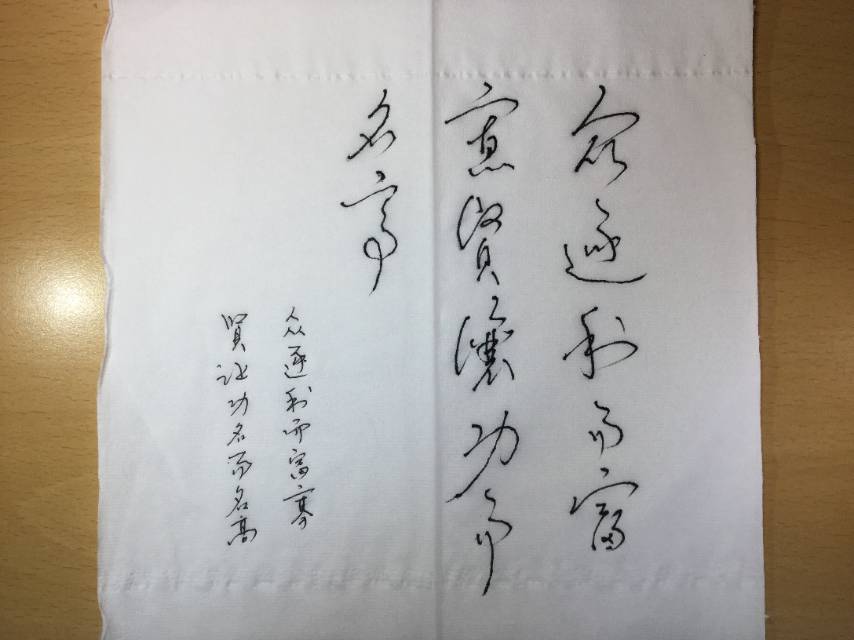 众逐利而富
寡賢讓功而
名高
众逐利而富寡
贤让功名而名高